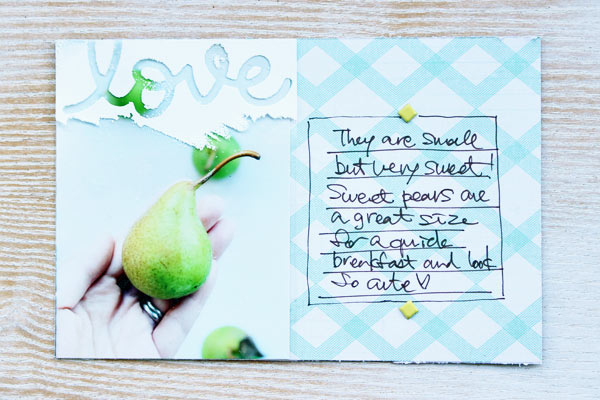 love
They are small
but very sweet!
Sweet pears are
a great size
for a quick
breakfast and look
so cute♡